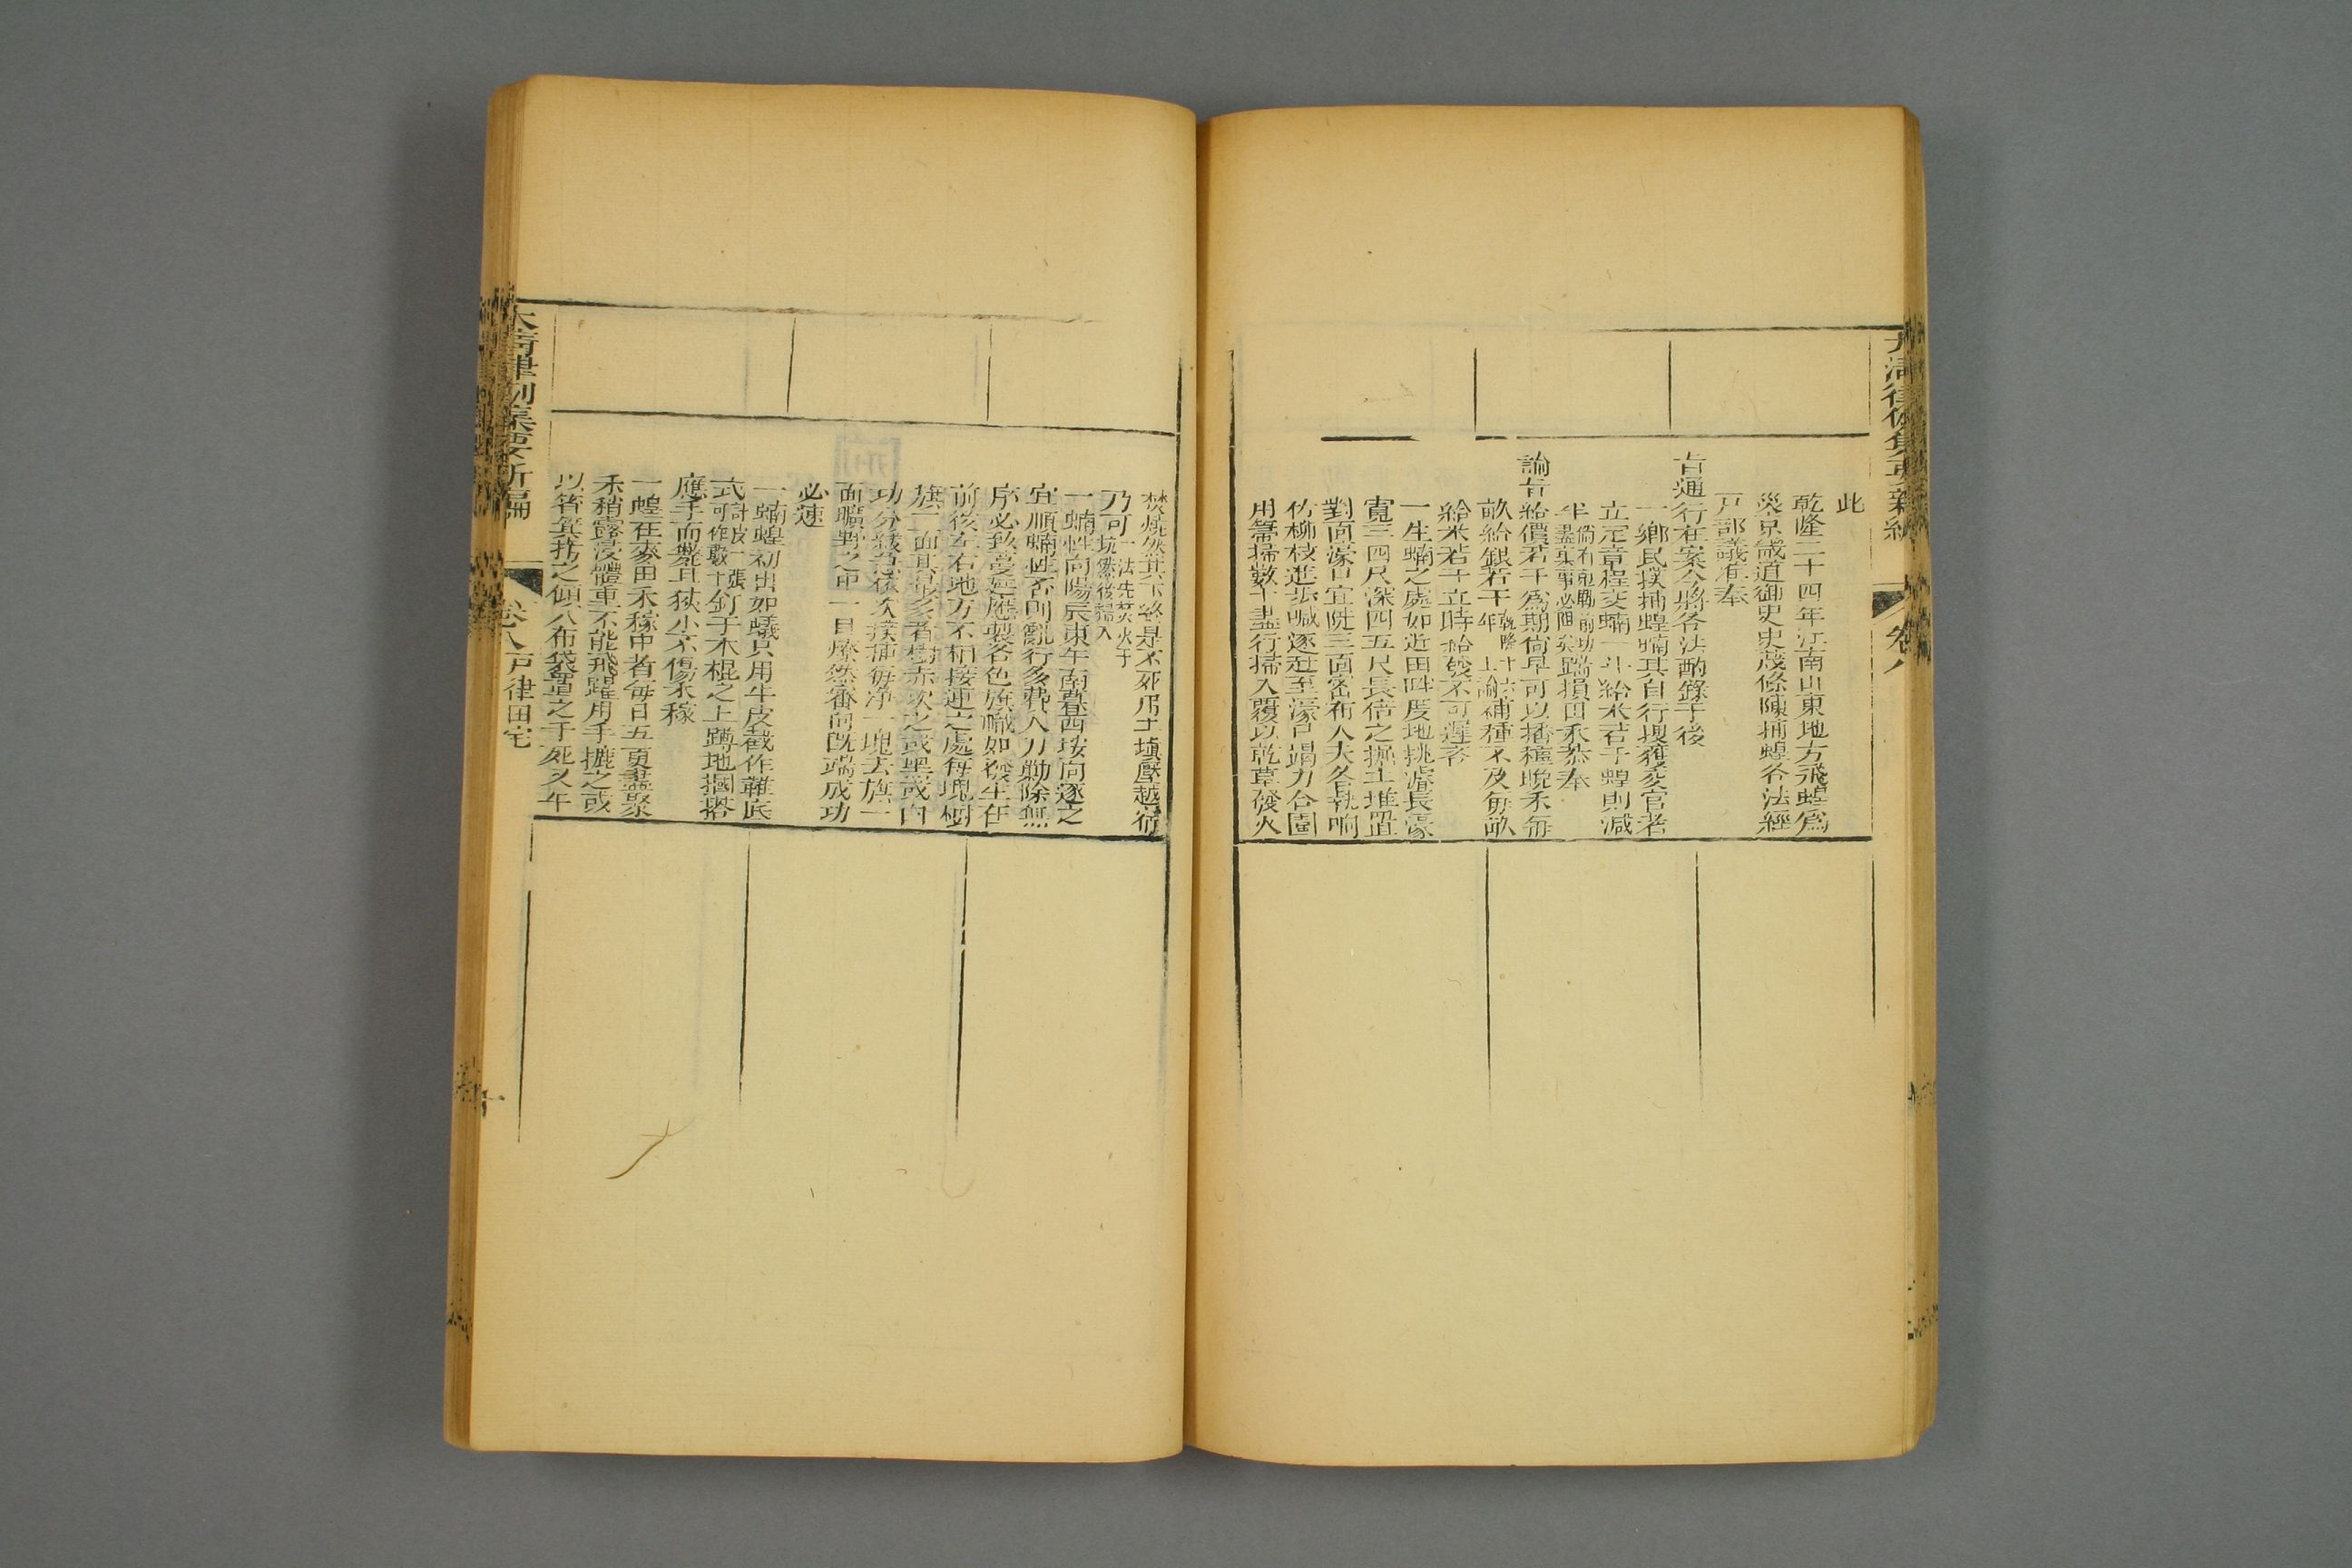 大清律例集要新編
卷八
此
乾隆二十四年江南山東地方飛蝗爲
災京畿道御史史茂條陳捕蝗各法經
戸部議准奉
旨通行在案今將各法酌錄于後
一鄉民撲捕蝗蝻其自行搜獲交官者
立定章程交蝻一斗給米若干蝗則減
半
踹損田禾恭奉
諭旨給價若干爲期尚早可以播種晚禾每
畝給銀若干年
上諭補種不及每畝
給米若干立時給發不可遲吝
一生蝻之處如近田畔度地挑濬長濠
寬三四尺深四五尺長倍之掘土堆置
對面濠口宜陡三面密布人夫各執响
竹柳枝進步喊逐趕至濠口竭力合圍
用箒掃數干盡行掃入覆以乾草發火
焚燒然其下終是不死用土塡壓越宿
乃可一法先焚火于坑然後掃入
一蝻性向陽辰東午南暮西按向逐之
宜順蝻性否則亂行多費人力勦除無
序必致蔓延應製各色旗幟如發生在
前後左右地方不相接連之處每塊樹
旗一面其最多者樹赤次之或黑或白
功分緩急依次撲捕每淨一塊去旗一
面曠野之中一目燎然審向旣端成功
必速
一蝻蝗初出如蟻只用牛皮截作鞵底
式計皮一張可作數十釘于木棍之上蹲地摑搭
應手而斃且狹小不傷禾稼
一蝗在麥田禾稼中者每日五更盡聚
禾稍露浸體重不能飛躍用手摝之或
以筲箕抄之傾入布袋蒸之于死又午
大清律例集要新編
卷八戸律田宅
十